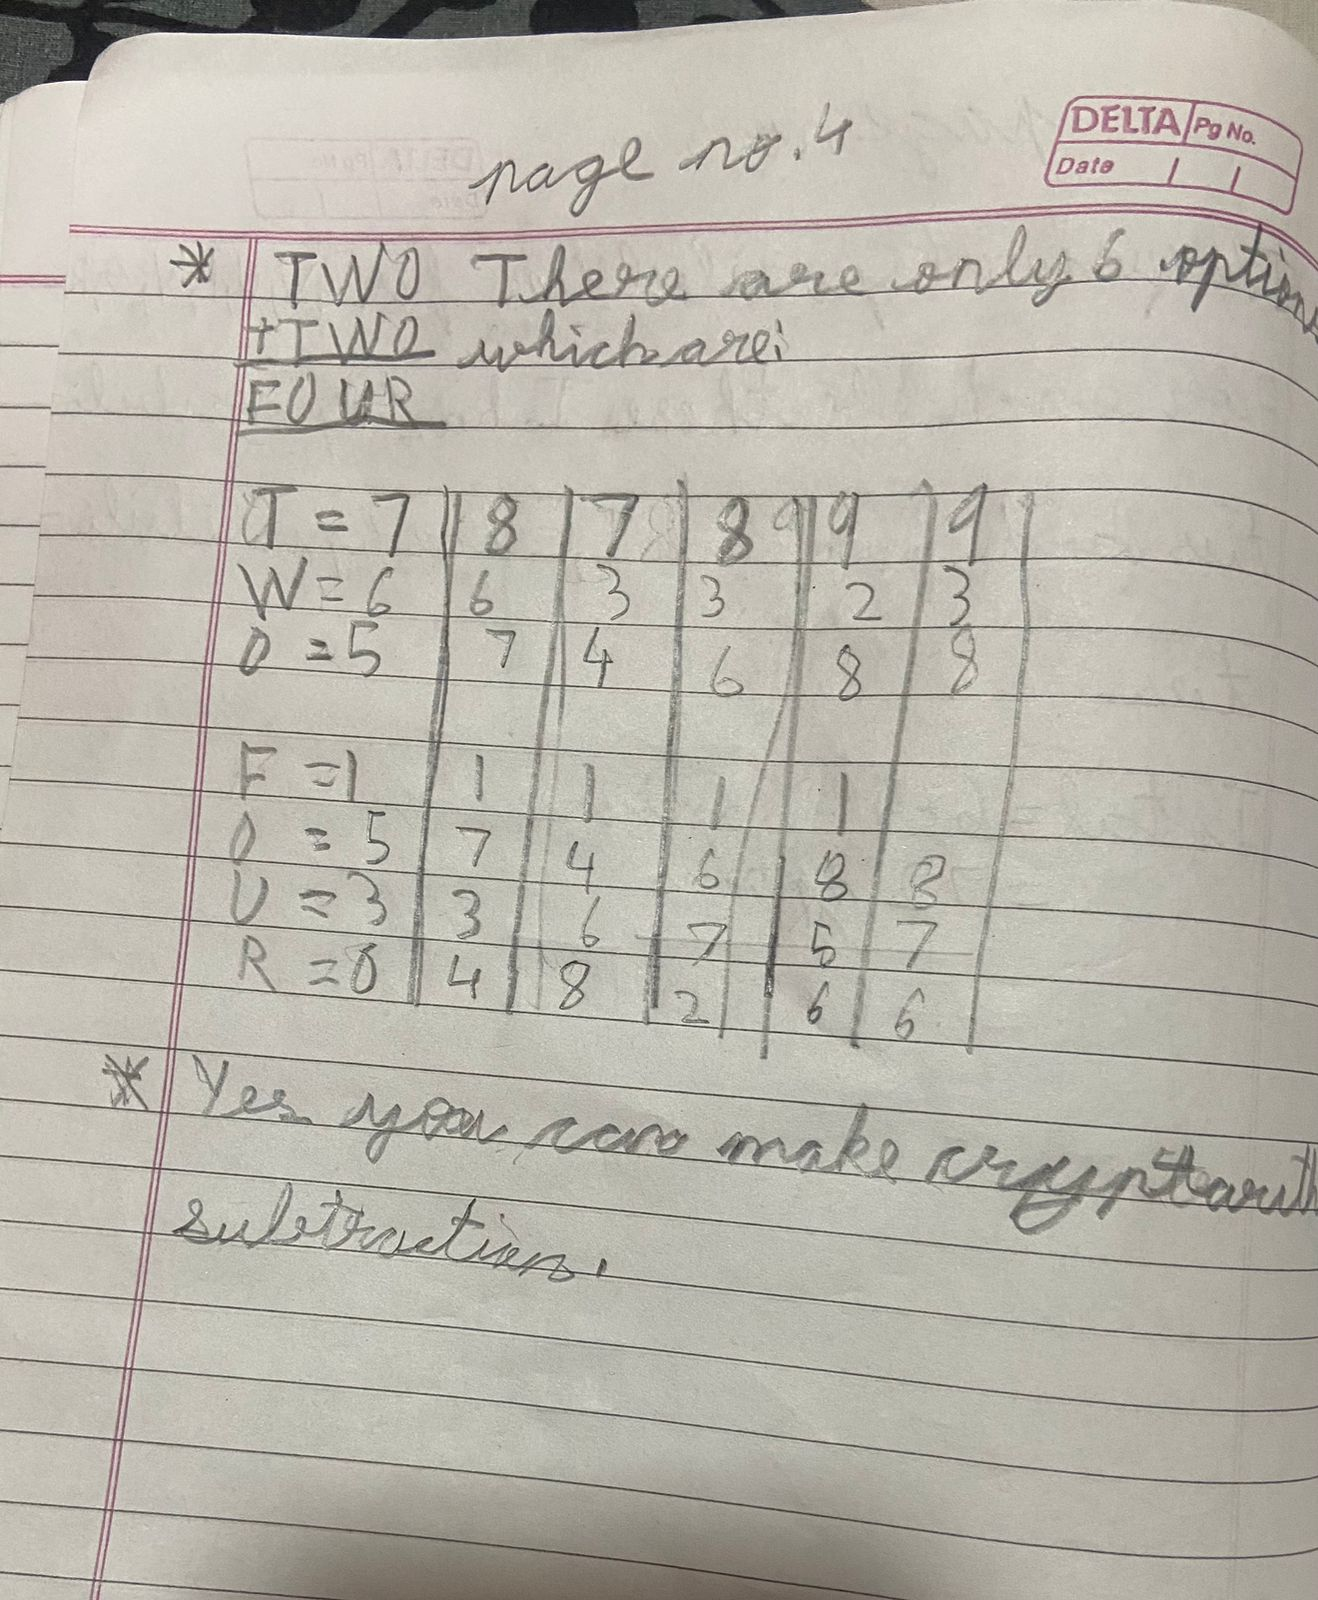 page no. 4
DELTA Pg No.
Date
* TWO There are only 6 option
+TWO which are:
FOUR
T = 7 8 7 8 9 9
W = 6 6 3 3 2 3
O = 5 7 4 6 8 8
F = 1 1 1 1 1
O = 5 7 4 6 8 8
U = 3 3 6 7 5 7
R = 0 4 8 2 6 6
* Yes you can make cryptarith
subtraction.